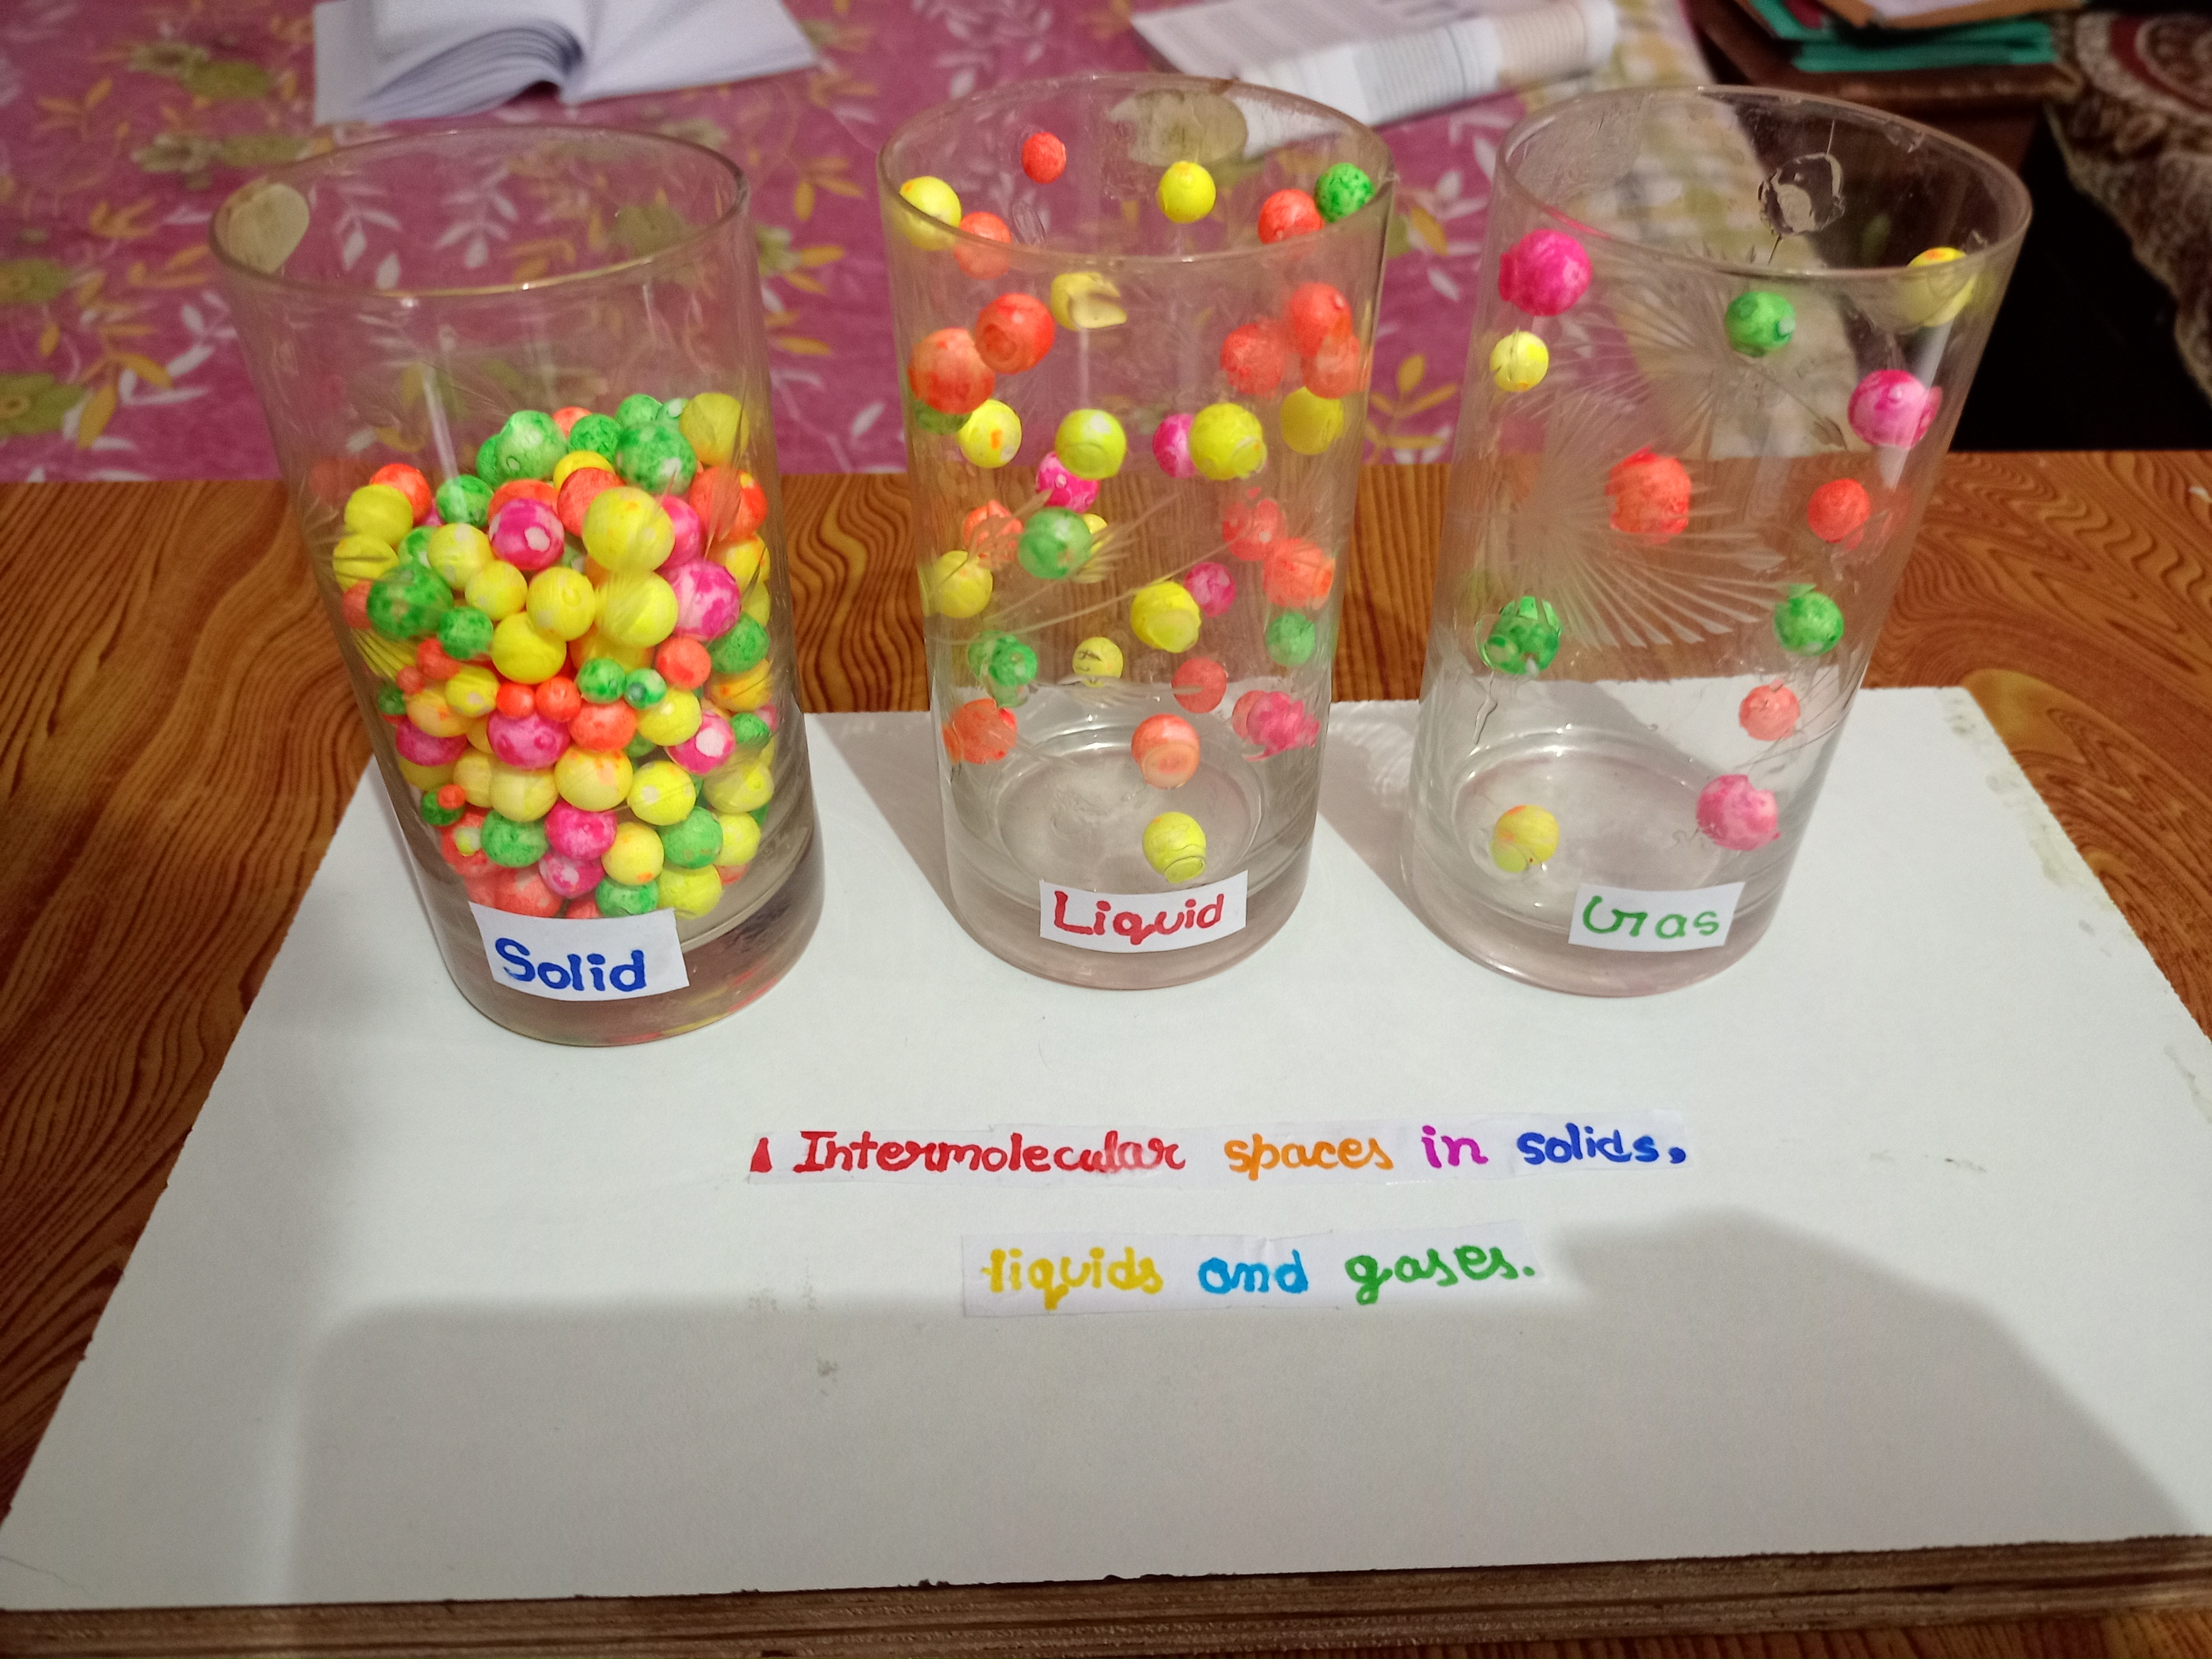 Solid
Liquid
Gas
Intermolecular spaces in solids,
liquids and gases.